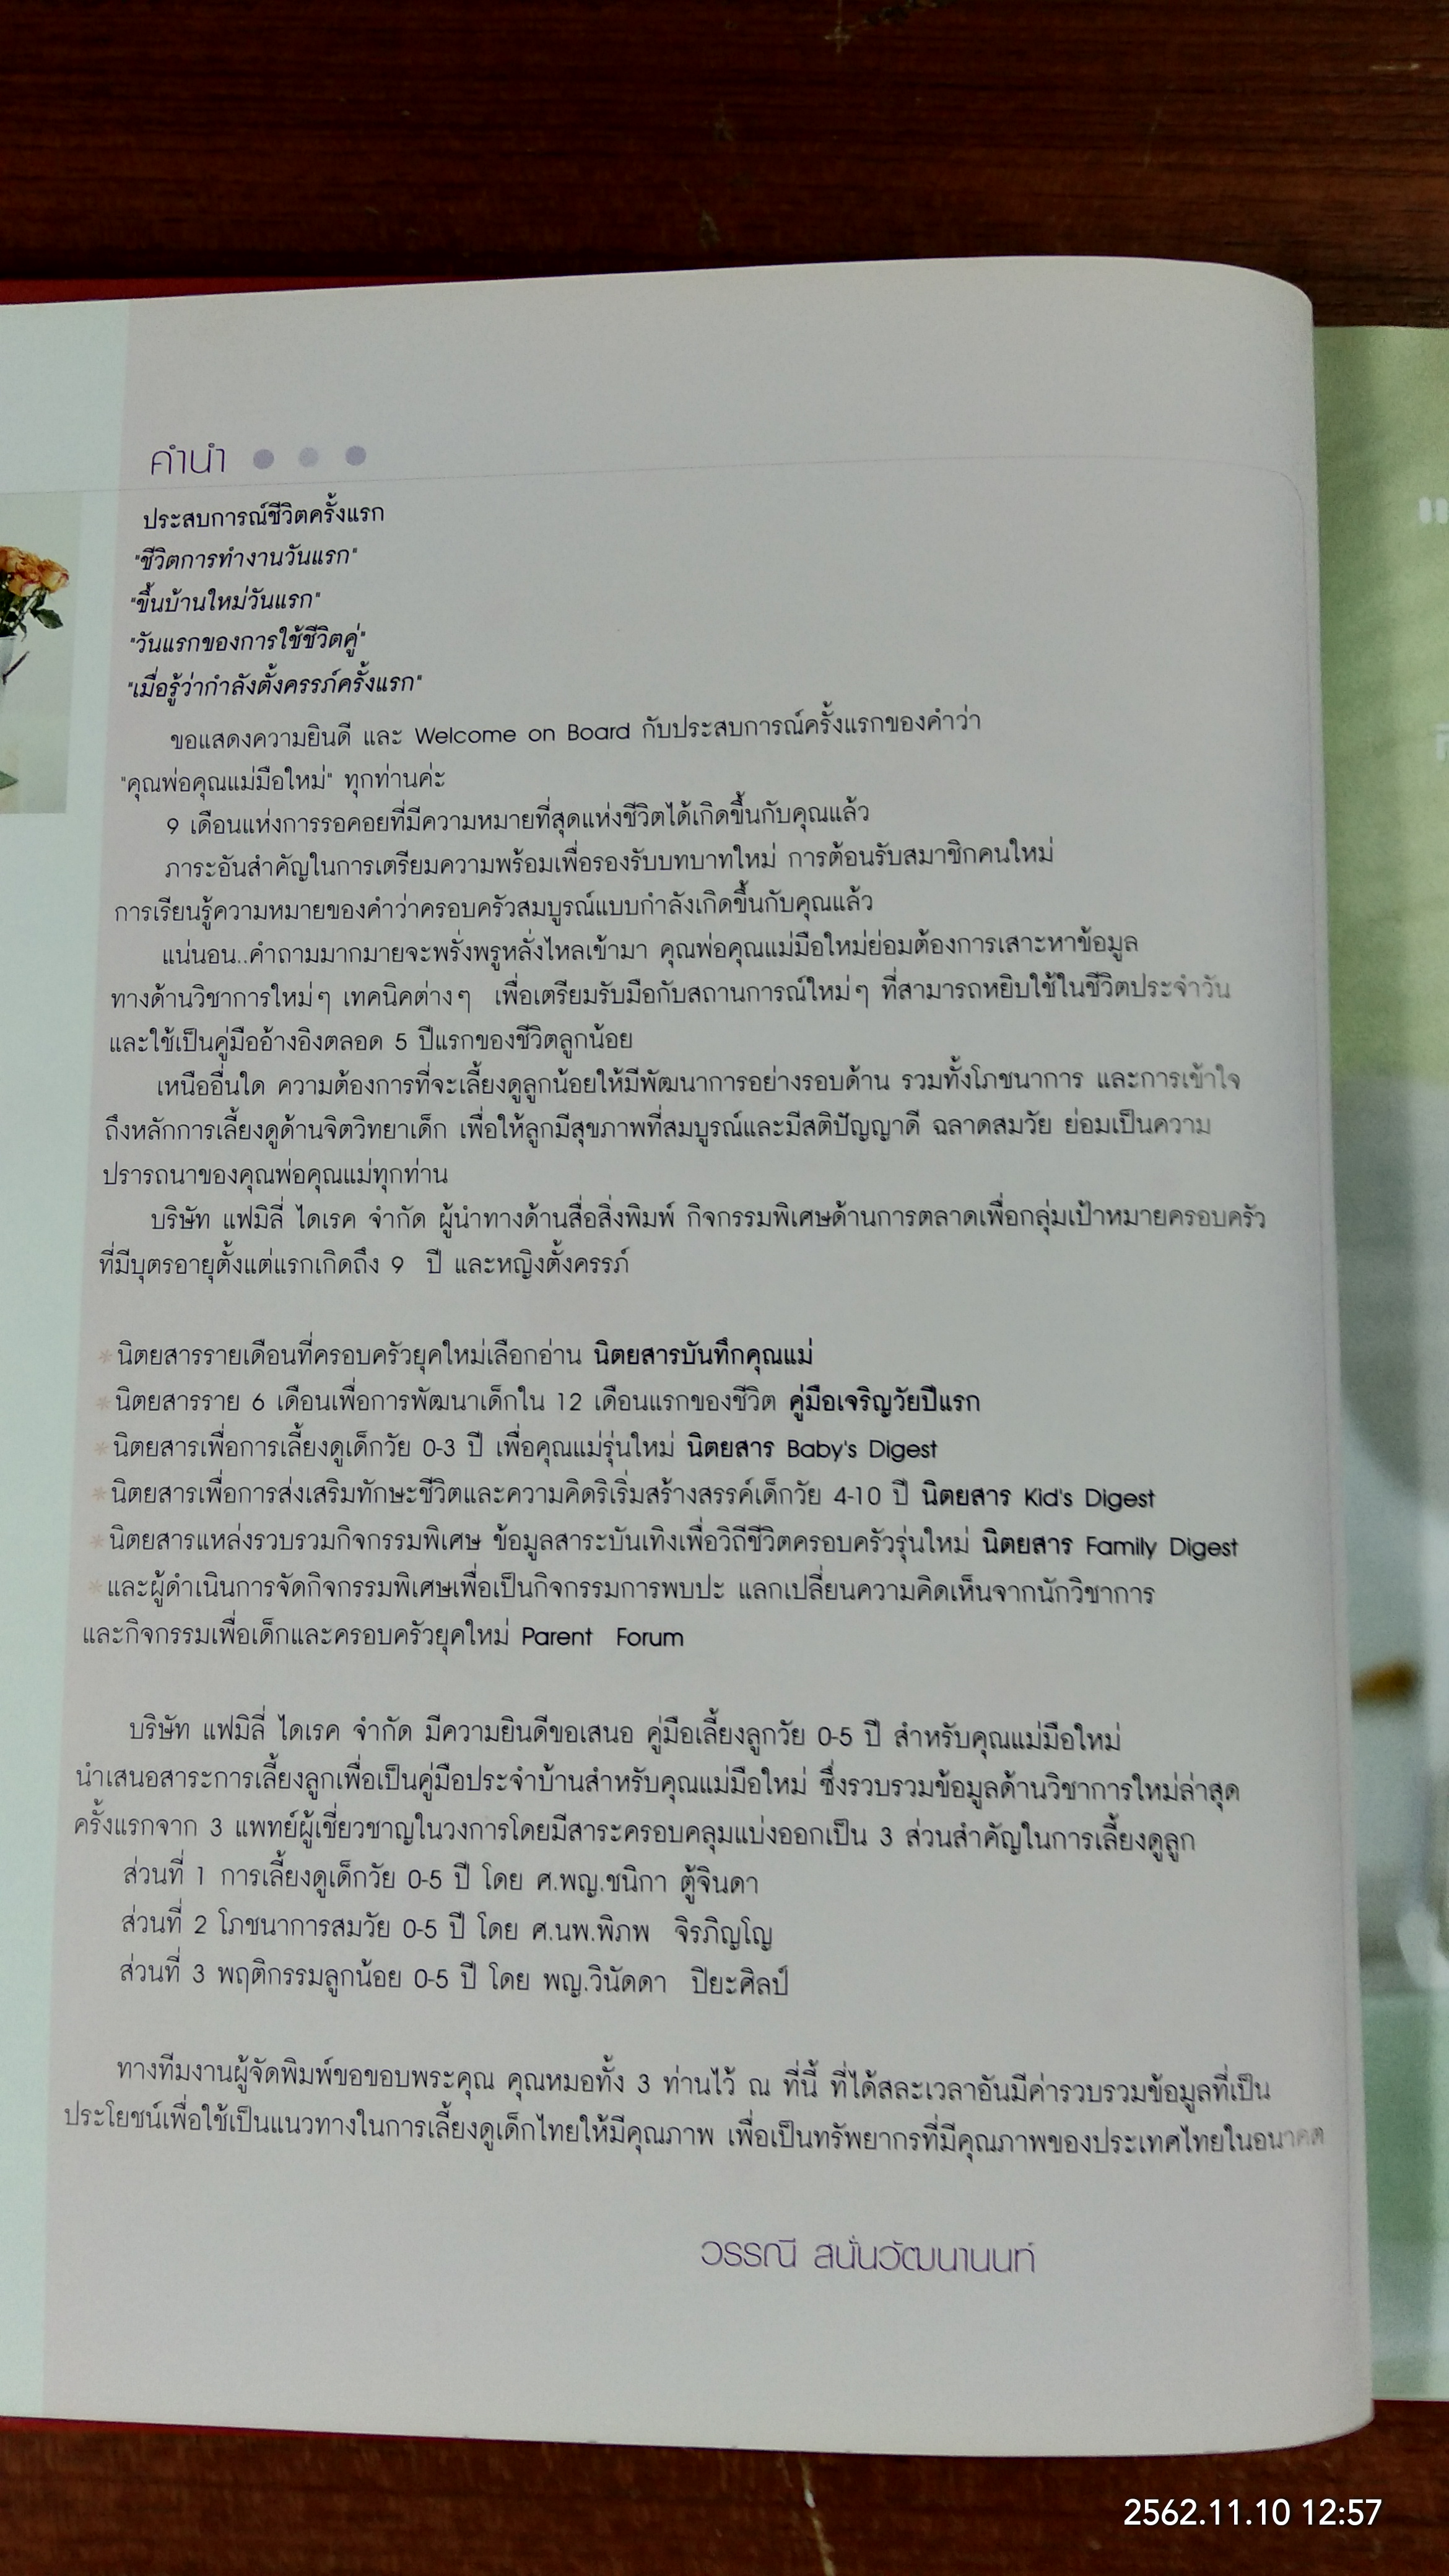 คำนำ
ประสบการณ์ชีวิตครั้งแรก
"ชีวิตการทำงานวันแรก"
"ขึ้นบ้านใหม่วันแรก"
"วันแรกของการใช้ชีวิตคู่"
"เมื่อรู้ว่ากำลังตั้งครรภ์ครั้งแรก"
ขอแสดงความยินดี และ Welcome on Board กับประสบการณ์ครั้งแรกของคำว่า
"คุณพ่อคุณแม่มือใหม่" ทุกท่านค่ะ
9 เดือนแห่งการรอคอยที่มีความหมายที่สุดแห่งชีวิตได้เกิดขึ้นกับคุณแล้ว
ภาระอันสำคัญในการเตรียมความพร้อมเพื่อรองรับบทบาทใหม่ การต้อนรับสมาชิกคนใหม่
การเรียนรู้ความหมายของคำว่าครอบครัวสมบูรณ์แบบกำลังเกิดขึ้นกับคุณแล้ว
แน่นอน..คำถามมากมายจะพรั่งพรูหลั่งไหลเข้ามา คุณพ่อคุณแม่มือใหม่ย่อมต้องการเสาะหาข้อมูล
ทางด้านวิชาการใหม่ๆ เทคนิคต่างๆ เพื่อเตรียมรับมือกับสถานการณ์ใหม่ๆ ที่สามารถหยิบใช้ในชีวิตประจำวัน
และใช้เป็นคู่มืออ้างอิงตลอด 5 ปีแรกของชีวิตลูกน้อย
เหนืออื่นใด ความต้องการที่จะเลี้ยงดูลูกน้อยให้มีพัฒนาการอย่างรอบด้าน รวมทั้งโภชนาการ และการเข้าใจ
ถึงหลักการเลี้ยงดูด้านจิตวิทยาเด็ก เพื่อให้ลูกมีสุขภาพที่สมบูรณ์และมีสติปัญญาดี ฉลาดสมวัย ย่อมเป็นความ
ปรารถนาของคุณพ่อคุณแม่ทุกท่าน
บริษัท แฟมิลี่ ไดเรค จำกัด ผู้นำทางด้านสื่อสิ่งพิมพ์ กิจกรรมพิเศษด้านการตลาดเพื่อกลุ่มเป้าหมายครอบครัว
ที่มีบุตรอายุตั้งแต่แรกเกิดถึง 9 ปี และหญิงตั้งครรภ์
*นิตยสารรายเดือนที่ครอบครัวยุคใหม่เลือกอ่าน นิตยสารบันทึกคุณแม่
*นิตยสารราย 6 เดือนเพื่อการพัฒนาเด็กใน 12 เดือนแรกของชีวิต คู่มือเจริญวัยปีแรก
*นิตยสารเพื่อการเลี้ยงดูเด็กวัย 0-3 ปี เพื่อคุณแม่รุ่นใหม่ นิตยสาร Baby's Digest
*นิตยสารเพื่อการส่งเสริมทักษะชีวิตและความคิดริเริ่มสร้างสรรค์เด็กวัย 4-10 ปี นิตยสาร Kid's Digest
*นิตยสารแหล่งรวบรวมกิจกรรมพิเศษ ข้อมูลสาระบันเทิงเพื่อวิถีชีวิตครอบครัวรุ่นใหม่ นิตยสาร Family Digest
*และผู้ดำเนินการจัดกิจกรรมพิเศษเพื่อเป็นกิจกรรมการพบปะ แลกเปลี่ยนความคิดเห็นจากนักวิชาการ
และกิจกรรมเพื่อเด็กและครอบครัวยุคใหม่ Parent Forum
บริษัท แฟมิลี่ ไดเรค จำกัด มีความยินดีขอเสนอ คู่มือเลี้ยงลูกวัย 0-5 ปี สำหรับคุณแม่มือใหม่
นำเสนอสาระการเลี้ยงลูกเพื่อเป็นคู่มือประจำบ้านสำหรับคุณแม่มือใหม่ ซึ่งรวบรวมข้อมูลด้านวิชาการใหม่ล่าสุด
ครั้งแรกจาก 3 แพทย์ผู้เชี่ยวชาญในวงการโดยมีสาระครอบคลุมแบ่งออกเป็น 3 ส่วนสำคัญในการเลี้ยงดูลูก
ส่วนที่ 1 การเลี้ยงดูเด็กวัย 0-5 ปี โดย ศ.พญ.ชนิกา ตู้จินดา
ส่วนที่ 2 โภชนาการสมวัย 0-5 ปี โดย ศ.นพ.พิภพ จิรภิญโญ
ส่วนที่ 3 พฤติกรรมลูกน้อย 0-5 ปี โดย พญ.วินัดดา ปิยะศิลป์
ทางทีมงานผู้จัดพิมพ์ขอขอบพระคุณ คุณหมอทั้ง 3 ท่านไว้ ณ ที่นี้ ที่ได้สละเวลาอันมีค่ารวบรวมข้อมูลที่เป็น
ประโยชน์เพื่อใช้เป็นแนวทางในการเลี้ยงดูเด็กไทยให้มีคุณภาพ เพื่อเป็นทรัพยากรที่มีคุณภาพของประเทศไทยในอนาคต
วรรณี สนั่นวัฒนานนท์
2562.11.10 12:57